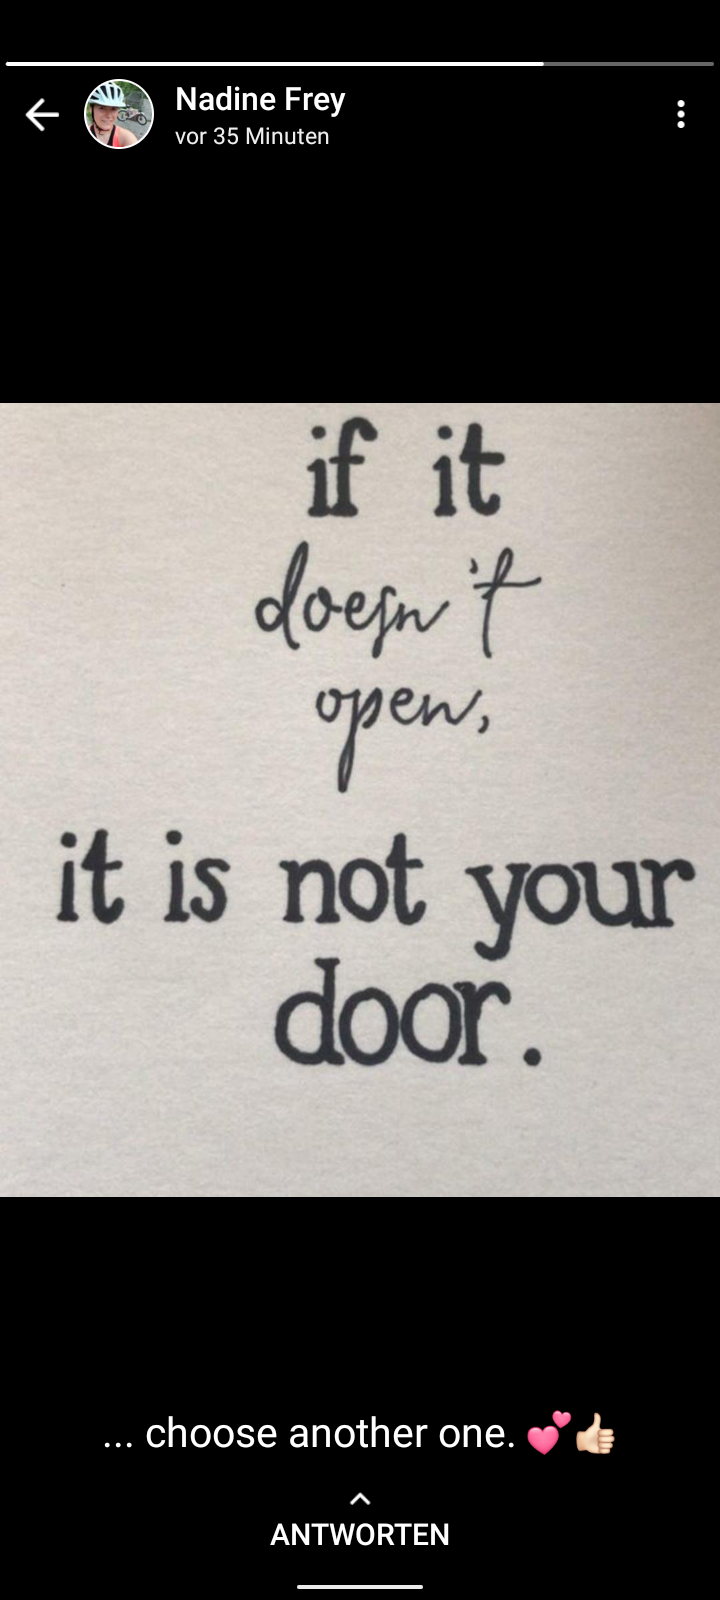 Nadine Frey
vor 35 Minuten
if it
doesn't
open,
it is not your
door.
... choose another one. 💕👍🏻
ANTWORTEN